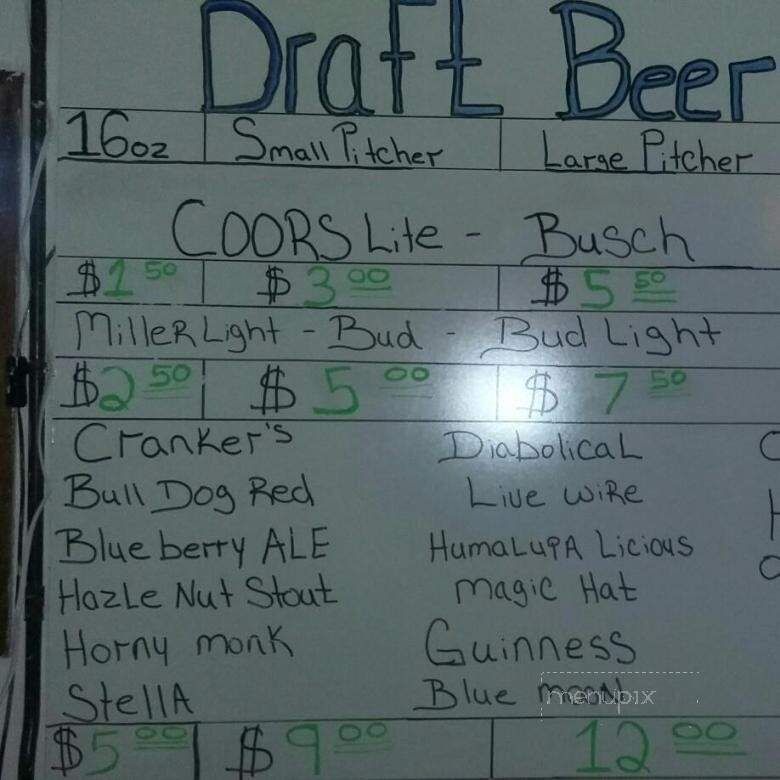 Draft Beer
16oz Small Pitcher Large Pitcher
COORS Lite - Busch
$1 50 $3 00 $5 50
Miller Light - Bud - Bud Light
$2 50 $5 00 $7 50
Cranker's Diabolical
Bull Dog Red Live Wire
Blueberry ALE HumaLupA Licious
Hazle Nut Stout Magic Hat
Horny monk Guinness
StellA Blue moon
menupix
$5 00 $9 00 12 00